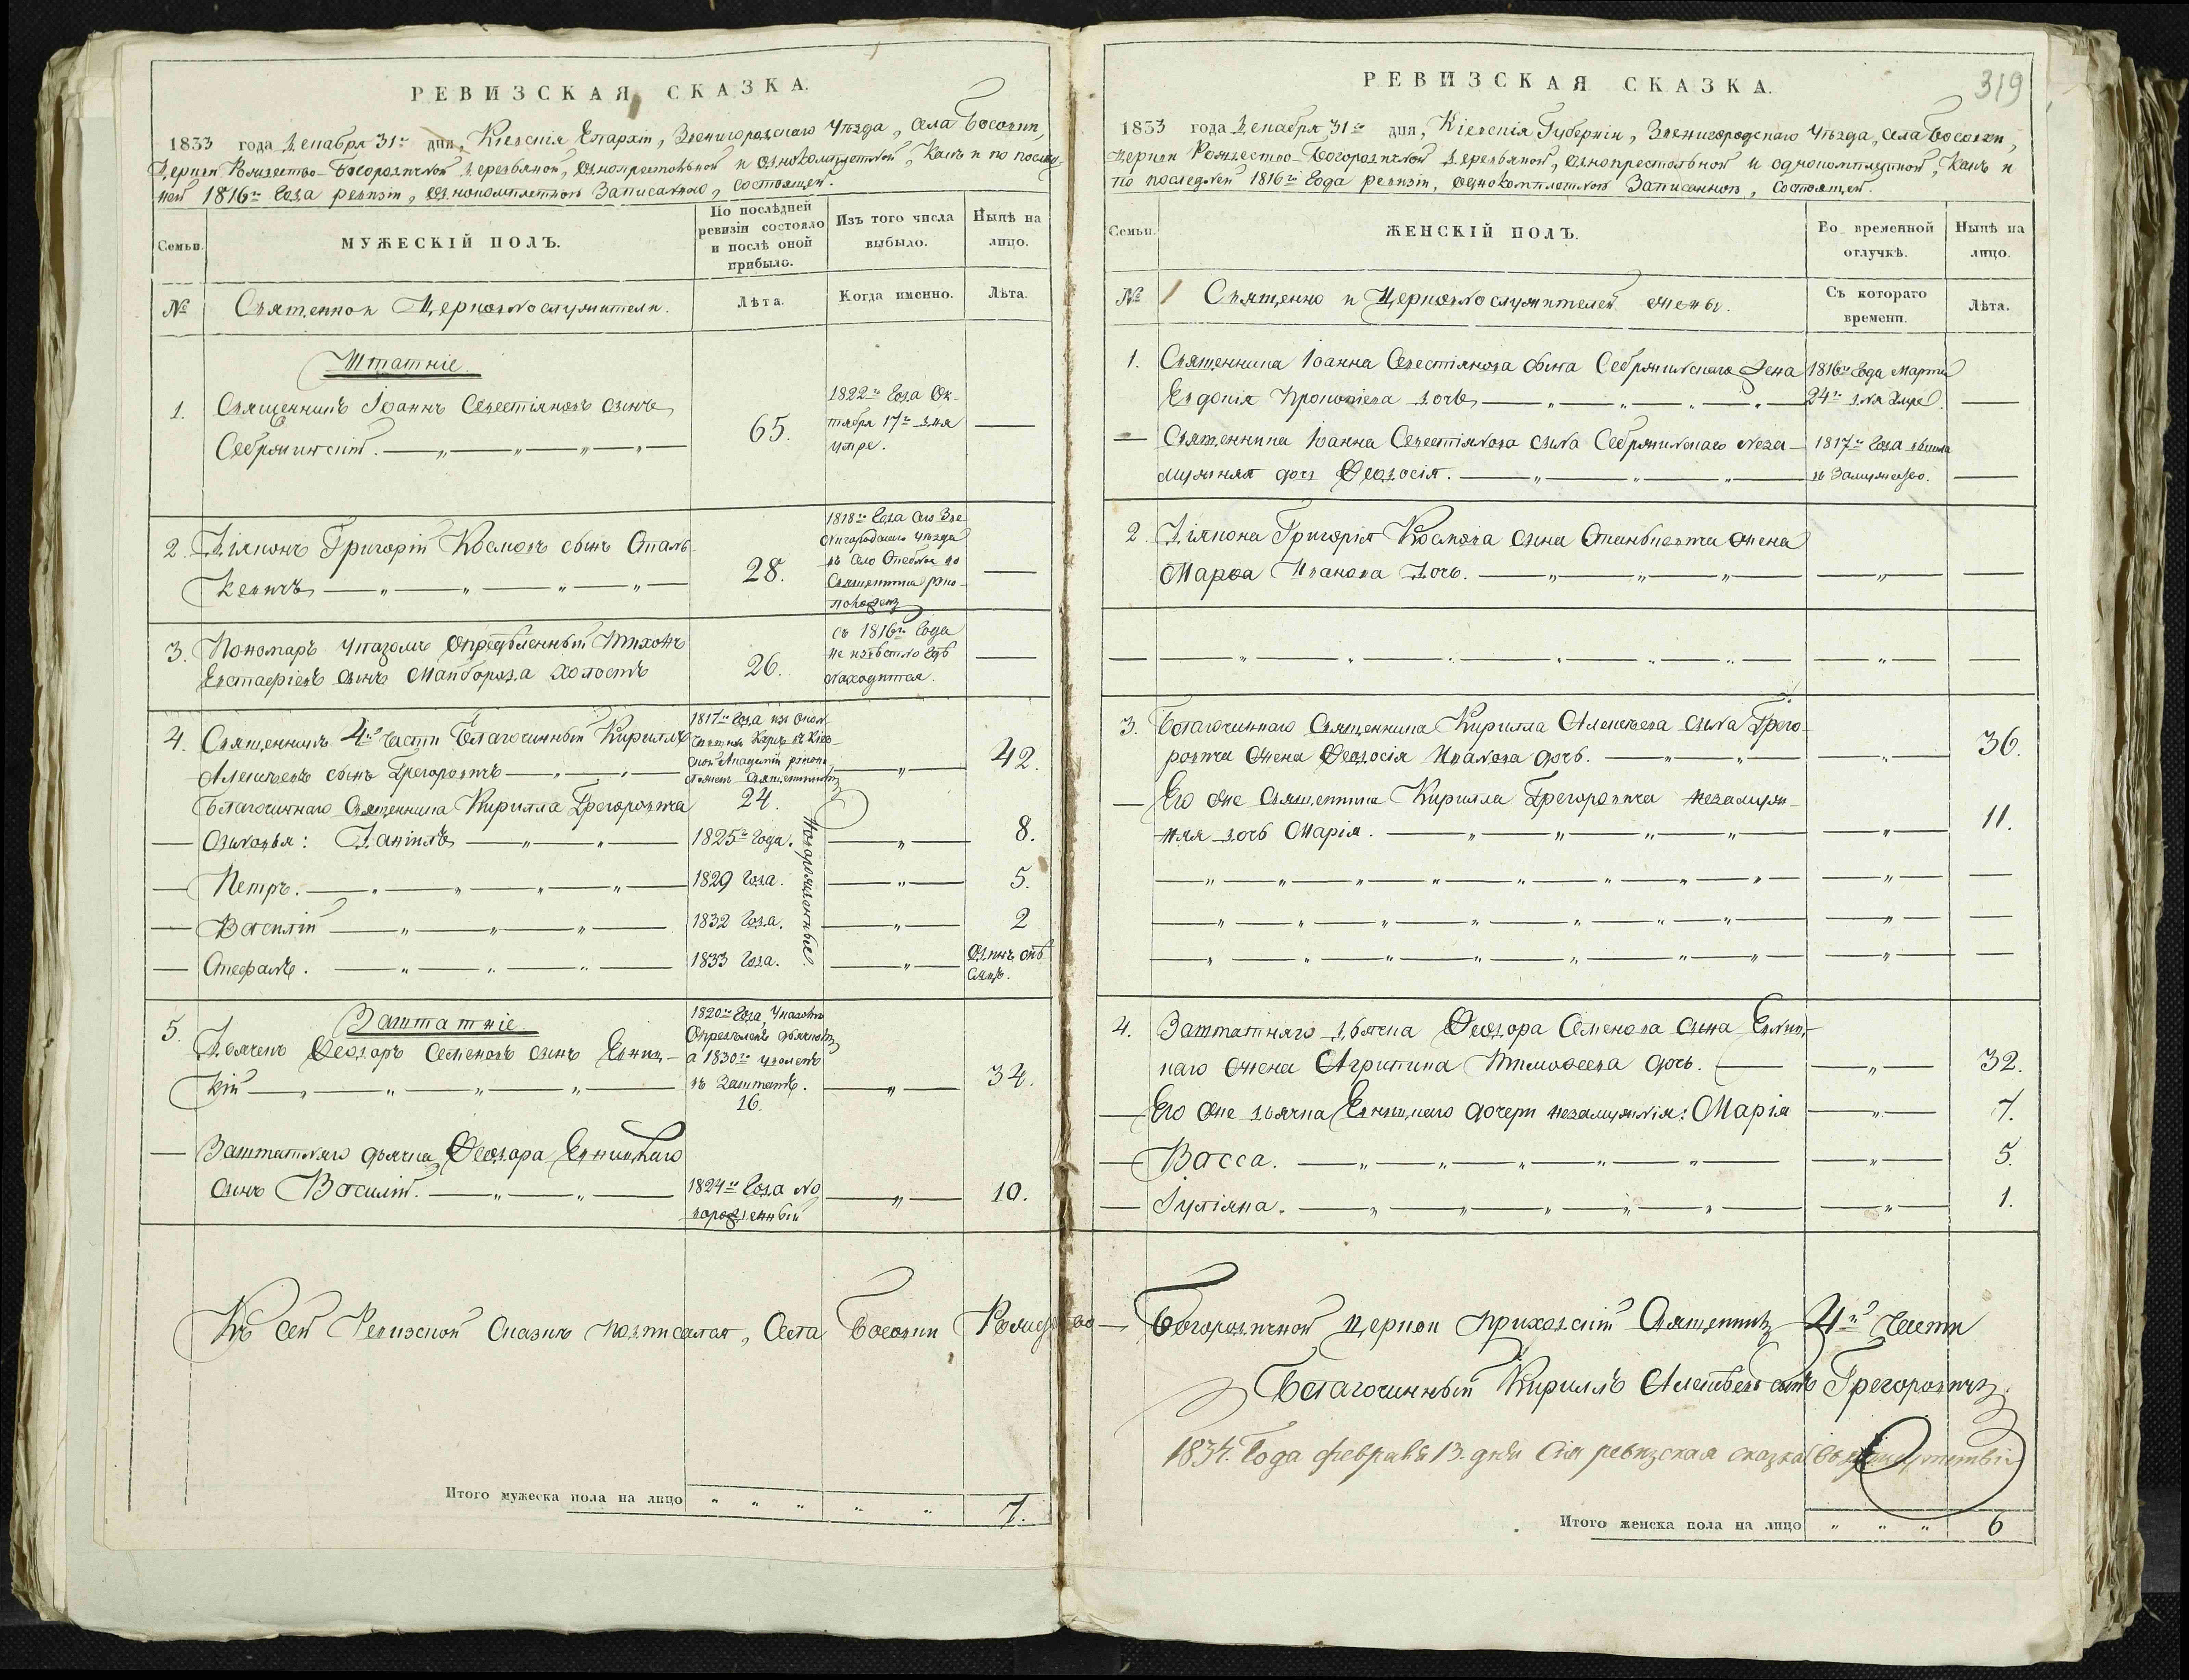 РЕВИЗСКАЯ СКАЗКА.
1833 года Декабря 31го дня, Кіевскія Епархіи, Звенигородскаго Уѣзда, Села Босовки,
Церкви Рождество-Богородичной деревянной, однопрестольной и однокомплетной, какъ и по послед
ней 1816го Года ревизіи, однокомплетною Записанною, Состоящей.
Семьи.
МУЖЕСКІЙ ПОЛЪ.
По послѣдней ревизіи состояло и послѣ оной прибыло.
Изъ того числа выбыло.
Нынѣ на лицо.
№
Священнои Церковнослужители.
Лѣта.
Когда именно.
Лѣта.
Штатніе.
1. Священникъ Іоаннъ Севестіяновъ сынъ
Себржинскій. 65.
1822го Года Ок-
тября 17го дня
умре.
2. Діяконъ Григорій Космовъ сынъ Стань-
кевичъ 28.
1818го Года
Звенигородскаго Уѣзда
въ Село во
Священника руко-
положенъ
3. Пономаръ Указомъ Опредѣленный Тихонъ
Евстафіевъ сынъ Майборода холостъ 26.
съ 1816го Года
не извѣстно гдѣ
находится.
4. Священникъ 4й части Благочинный Кириллъ
Алексѣевъ сынъ Грегоровичъ
1817го Года изъ окон
чившихъ Курсъ въ Кіев
ской Академіи рукопо
ложенъ Священникомъ
24. 42.
Благочиннаго Священника Кирилла Грегоровича
Сыновья: Даніилъ 1825го Года. 8.
Новорожденные.
Петръ. 1829 Года. 5.
Василій 1832 Года. 2
Стефанъ. 1833 Года.
Заштатніе
5. Дьячекъ Феодоръ Семеновъ сынъ Евниц-
кій
1820го Года, Указомъ
Опредѣленъ дьячкомъ
а 1830го уволенъ
въ Заштатъ.
16. 34.
Заштатнаго дьячка Феодора Евницкаго
Сынъ Василій. 1824го Года но
ворожденный 10.
Къ сей Ревизской Сказкѣ подписался, Села Босовки Рождество
Итого мужеска пола на лицо 7.
319
РЕВИЗСКАЯ СКАЗКА.
1833 года Декабря 31го дня, Кіевскія Губерніи, Звенигородскаго Уѣзда, Села Босовки,
Церкви Рождество-Богородичной деревяной, однопрестольной и однокомплетной, Какъ и
по последней 1816го Года ревизіи, однокомплетною Записанною, Состоящей.
Семьи.
ЖЕНСКІЙ ПОЛЪ.
Во временной отлучкѣ.
Нынѣ на лицо.
№
Священно и Церковнослужителей жены.
Съ котораго времени.
Лѣта.
1. Священника Іоанна Севестіянова сына Себржинскаго жена 1816го Года Марта
Евдокія Прокопіева дочь 24го дня умре.
Священника Іоанна Севестіянова сына Себржинскаго неза- 1817го Года вышла
мужняя дочь Феодосія. въ Замужество.
2. Діякона Григорія Космова сына Станькевича жена
Марѳа Иванова дочь.
3. Благочиннаго Священника Кирилла Алексѣева сына Грего-
ровича жена Феодосія Иванова дочь. 36.
Его же Священника Кирилла Грегоровича незамуж-
няя дочь Марія. 11.
4. Заштатнаго дьячка Феодора Семенова сына Евниц-
каго жена Агрипина Тимофеева дочь. 32.
Его же дьячка Евницкаго дочери незамужнія: Марія 7.
Васса. 5.
Іуліяна. 1.
Богородичной церкви приходскій Священникъ 4й части
Благочинный Кириллъ Алексѣевъ сынъ Грегоровичъ.
1834. Года февраля 13. дня Сія ревизская сказка
Итого женска пола на лицо 6